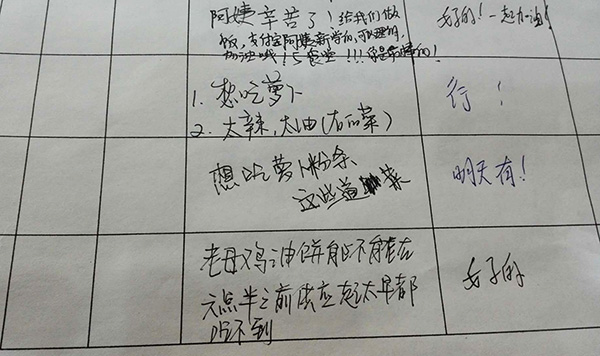 阿姨辛苦了!给我们做
饭,支付宝阿姨新学的,可以理解,
加油哦!5食堂!!!你是最棒的!
好的!一起加油!
1. 想吃萝卜
2. 太辣,太油(有的菜)
行!
想吃萝卜粉条
这些菜
明天有!
老母鸡油饼能不能在
六点半之前供应起太早都
吃不到
好的